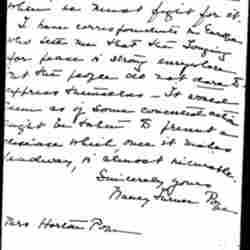 when he must fight for it.
I have correspondents in Europe
who tell me that the longing
for peace is strong everywhere
but the people do not dare to
express themselves - It would
seem as if some concerted action
might be taken to prevent a
disease which, once it makes
headway, is almost incurable.
Sincerely yours
Nancy Turner
Mrs Horton